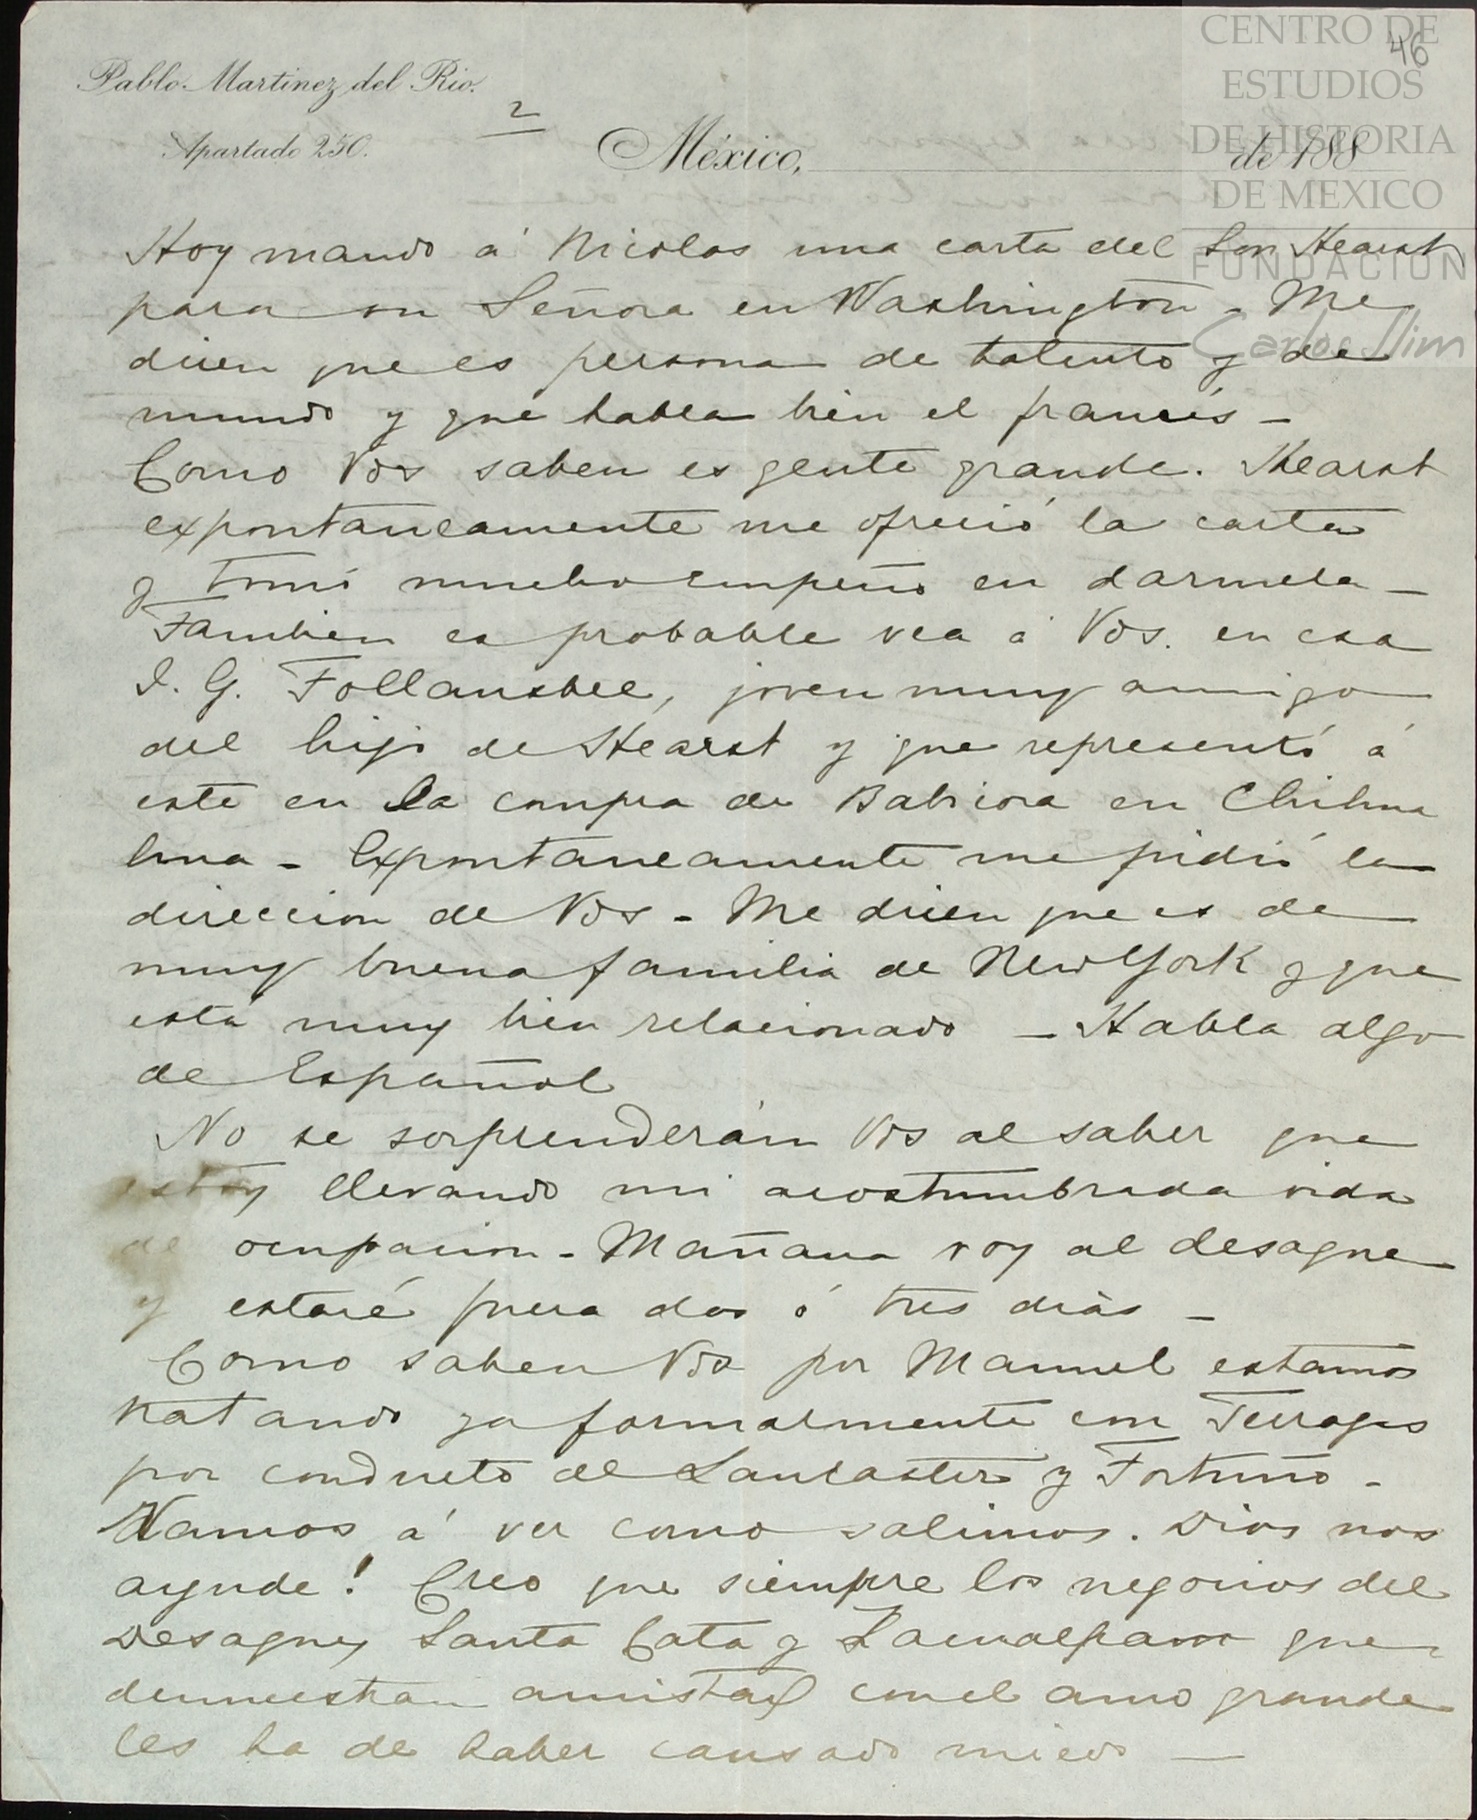 CENTRO DE
ESTUDIOS
DE HISTORIA
DE MEXICO
FUNDACION
Carlos Slim
46
Pablo Martinez del Rio.
Apartado 250.
2
México, de 188
Hoy mando á Nicolas una carta del Sor Hearst
para su Señora en Washington - Me
dicen que es persona de talento y de
mundo y que habla bien el francés -
Como Vds saben es gente grande. Hearst
expontaneamente me ofreció la carta
y tomó mucho empeño en darmela -
Tambien es probable vea á Vds. en esa
I. G. Follansbee, joven muy amigo
del hijo de Hearst y que representó á
este en la compra de Babicora en Chihua
hua - Expontaneamente me pidió la
direccion de Vds - Me dicen que es de
muy buena familia de New York y que
está muy bien relacionado - Habla algo
de Español
No se sorprenderán Vds al saber que
estoy llevando mi acostumbrada vida
de ocupacion - Mañana voy al desague
y estaré fuera dos ó tres dias -
Como saben Vds por Manuel estamos
tratando ya formalmente con Terrazas
por conducto de Lancaster y Fortuño -
Vamos á ver como salimos. Dios nos
ayude! Creo que siempre los negocios del
Desague, Santa Cata y Zacualpam que
demuestran amistad con el amo grande
les ha de haber causado miedo -